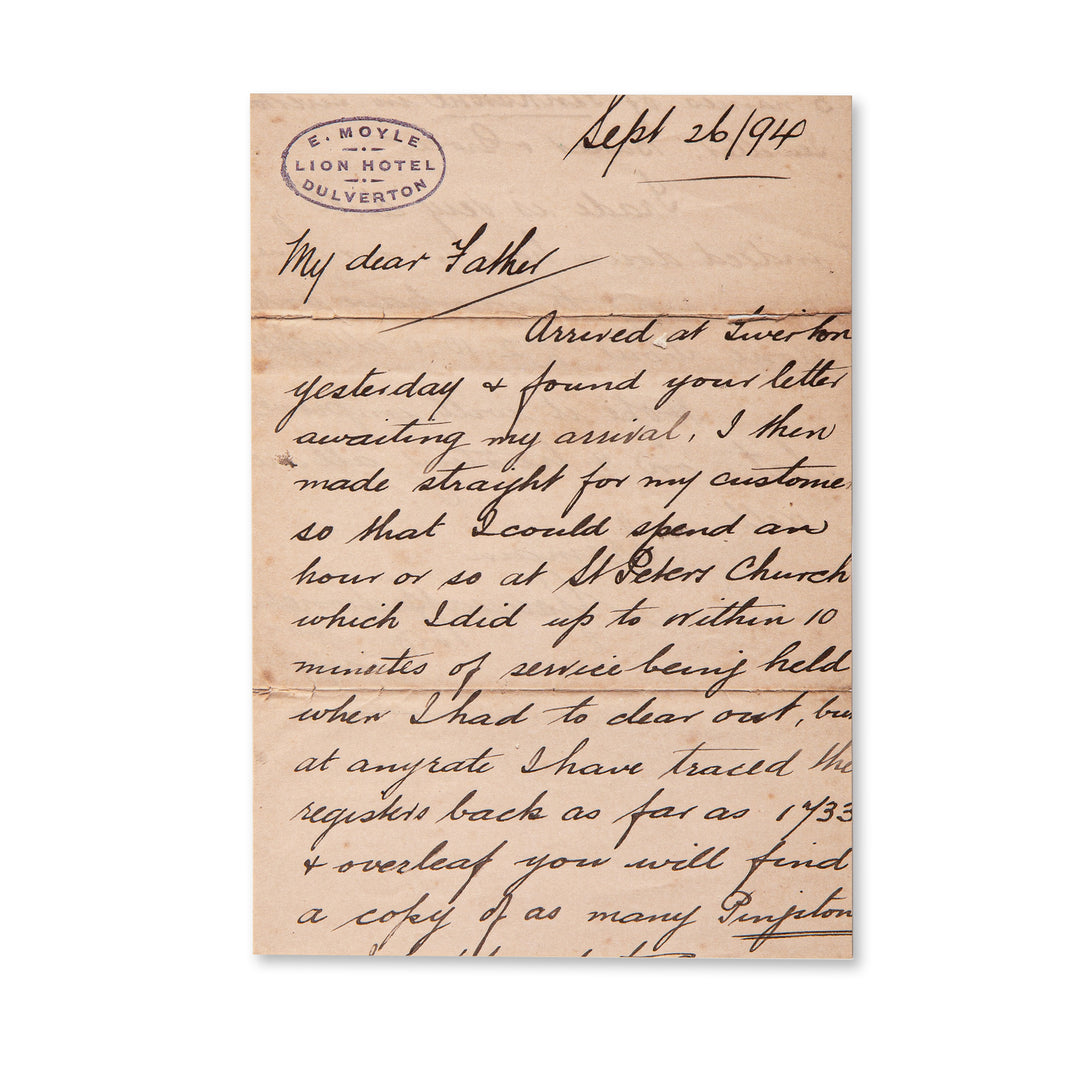 E. MOYLE
LION HOTEL
DULVERTON
Sept 26/94
My dear Father
Arrived at Tiverton
yesterday & found your letter
awaiting my arrival, I then
made straight for my custome
so that I could spend an
hour or so at St Peters Church
which I did up to within 10
minutes of service being held
when I had to clear out, but
at anyrate I have traced the
registers back as far as 1733
& overleaf you will find
a copy of as many Pinkston